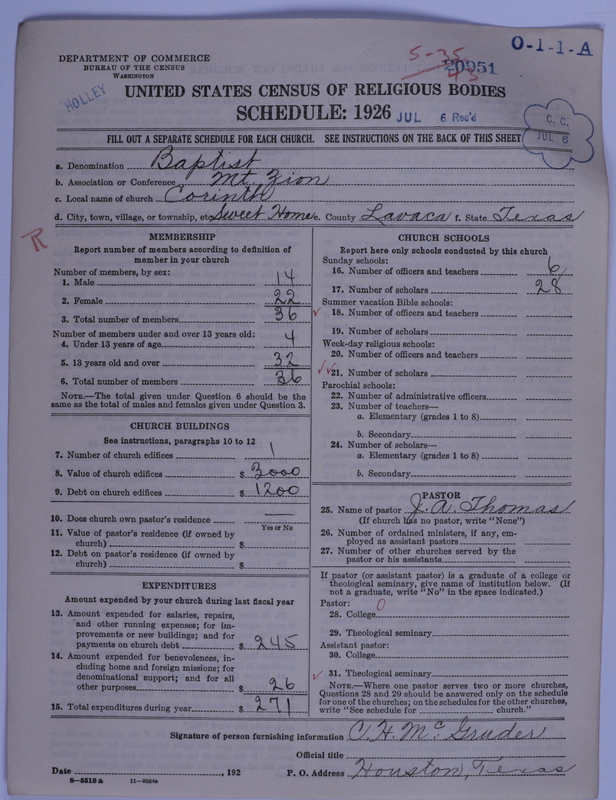 O-1-1-A
5-25
43
20951
DEPARTMENT OF COMMERCE
BUREAU OF THE CENSUS
WASHINGTON
HOLLEY
UNITED STATES CENSUS OF RELIGIOUS BODIES
SCHEDULE: 1926
JUL 6 Rec'd
C. C.
JUL 6
FILL OUT A SEPARATE SCHEDULE FOR EACH CHURCH. SEE INSTRUCTIONS ON THE BACK OF THIS SHEET
a. Denomination Baptist
b. Association or Conference Mt. Zion
c. Local name of church Corinth
d. City, town, village, or township, etc. Sweet Home e. County Lavaca f. State Texas
R
MEMBERSHIP
Report number of members according to definition of
member in your church
Number of members, by sex:
1. Male 14
2. Female 22
3. Total number of members 36
Number of members under and over 13 years old:
4. Under 13 years of age 4
5. 13 years old and over 32
6. Total number of members 36
NOTE.—The total given under Question 6 should be the
same as the total of males and females given under Question 3.
CHURCH BUILDINGS
See instructions, paragraphs 10 to 12
7. Number of church edifices 1
8. Value of church edifices $ 3000
9. Debt on church edifices $ 1200
10. Does church own pastor's residence
Yes or No
11. Value of pastor's residence (if owned by
church) $
12. Debt on pastor's residence (if owned by
church) $
EXPENDITURES
Amount expended by your church during last fiscal year
13. Amount expended for salaries, repairs,
and other running expenses; for im-
provements or new buildings; and for
payments on church debt $ 245
14. Amount expended for benevolences, in-
cluding home and foreign missions; for
denominational support; and for all
other purposes $ 26
15. Total expenditures during year $ 271
CHURCH SCHOOLS
Report here only schools conducted by this church
Sunday schools:
16. Number of officers and teachers 6
17. Number of scholars 28
Summer vacation Bible schools:
18. Number of officers and teachers
19. Number of scholars
Week-day religious schools:
20. Number of officers and teachers
21. Number of scholars
Parochial schools:
22. Number of administrative officers
23. Number of teachers—
a. Elementary (grades 1 to 8)
b. Secondary
24. Number of scholars—
a. Elementary (grades 1 to 8)
b. Secondary
PASTOR
25. Name of pastor J. A. Thomas
(If church has no pastor, write "None")
26. Number of ordained ministers, if any, em-
ployed as assistant pastors
27. Number of other churches served by the
pastor or his assistants
If pastor (or assistant pastor) is a graduate of a college or
theological seminary, give name of institution below. (If
not a graduate, write "No" in the space indicated.)
Pastor:
28. College 0
29. Theological seminary
Assistant pastor:
30. College
31. Theological seminary
NOTE.—Where one pastor serves two or more churches,
Questions 28 and 29 should be answered only on the schedule
for one of the churches; on the schedules for the other churches,
write "See schedule for church."
Signature of person furnishing information C. H. McGruder
Official title
Date , 192
P. O. Address Houston, Texas
8-5518a 11-9084a